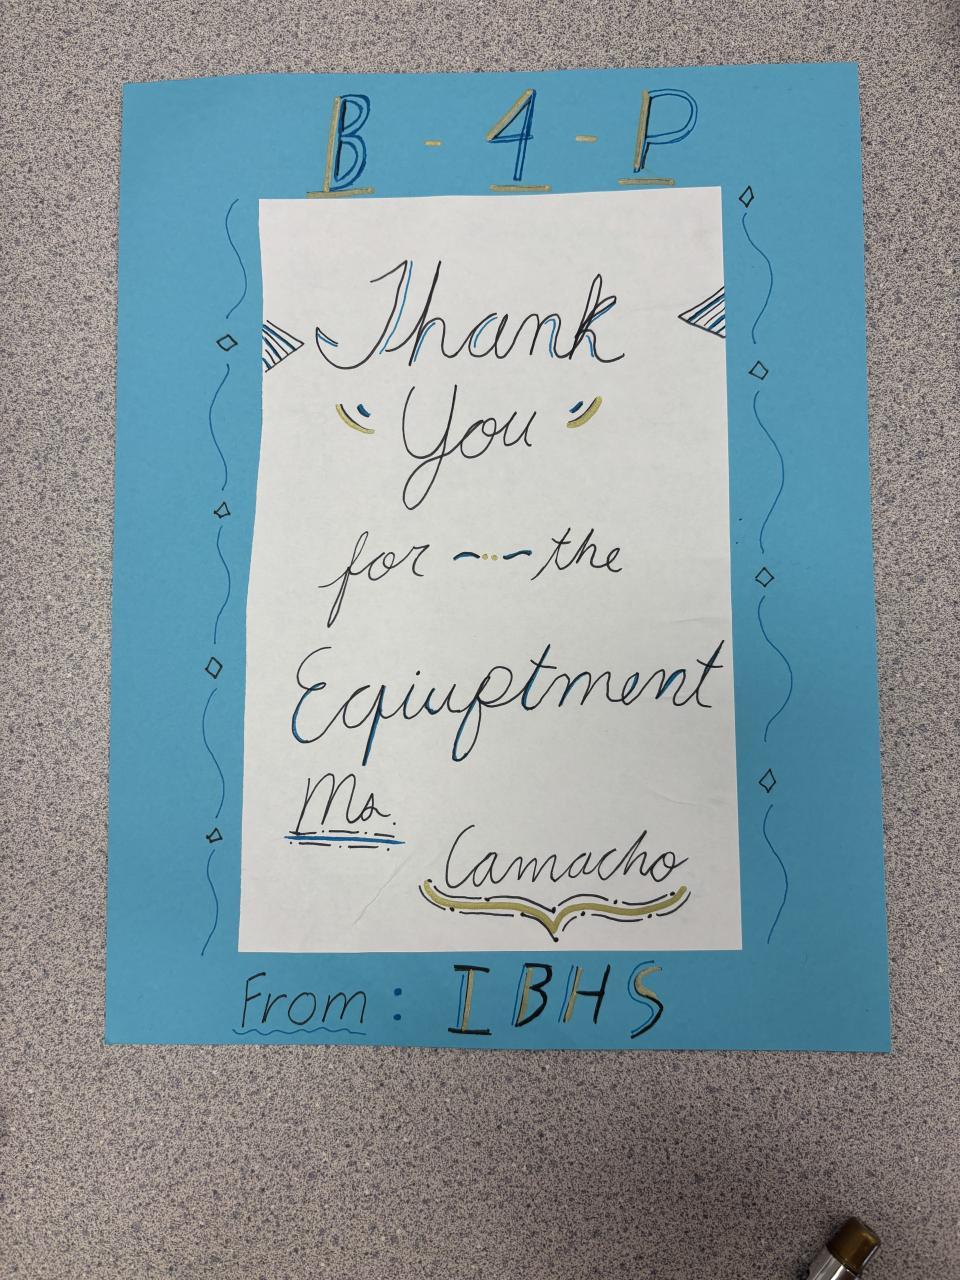 B - 4 - P
Thank
You
for -..- the
Eqiuptment
Ms.
Camacho
From: IBHS